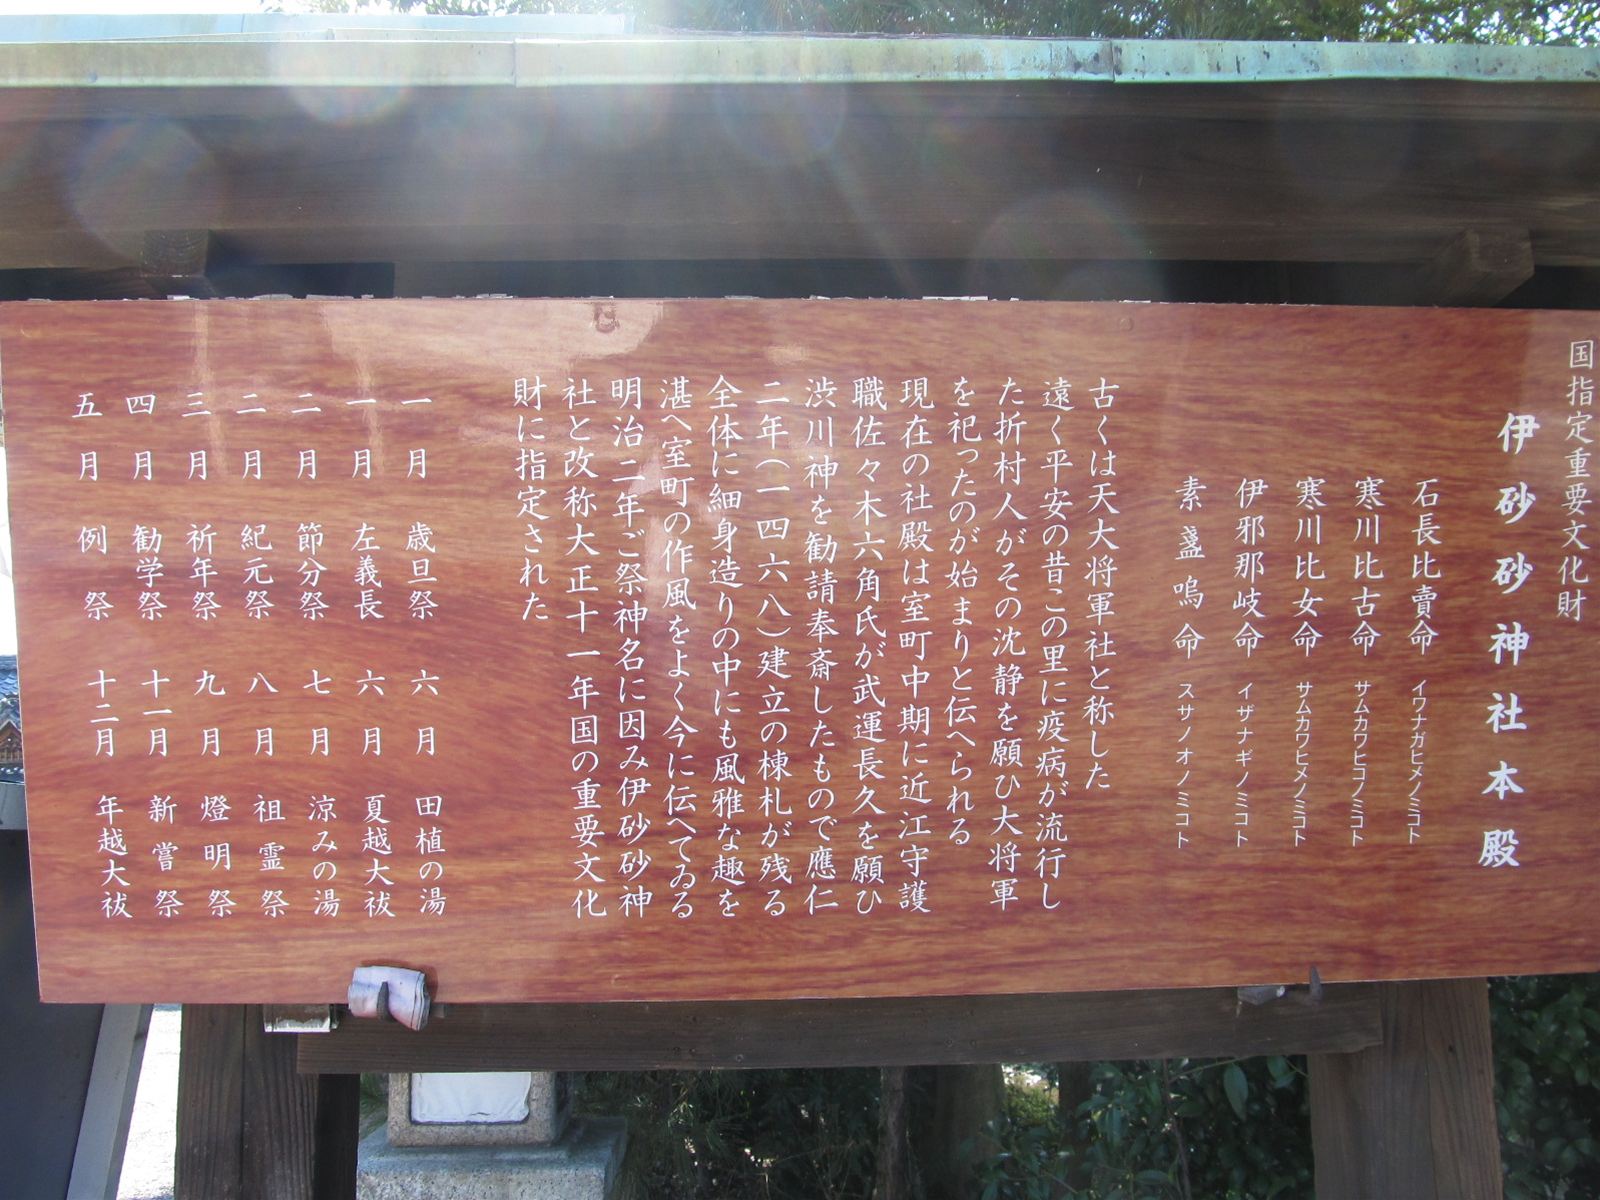 国指定重要文化財
伊砂砂神社本殿
石長比賣命 イワナガヒメノミコト
寒川比古命 サムカワヒコノミコト
寒川比女命 サムカワヒメノミコト
伊邪那岐命 イザナギノミコト
素盞嗚命 スサノオノミコト
古くは天大将軍社と称した
遠く平安の昔この里に疫病が流行し
た折村人がその沈静を願ひ大将軍
を祀ったのが始まりと伝へられる
現在の社殿は室町中期に近江守護
職佐々木六角氏が武運長久を願ひ
渋川神を勧請奉斎したもので應仁
二年(一四六八)建立の棟札が残る
全体に細身造りの中にも風雅な趣を
湛へ室町の作風をよく今に伝へてゐる
明治二年ご祭神名に因み伊砂砂神
社と改称大正十一年国の重要文化
財に指定された
一月 歳旦祭 六月 田植の湯
一月 左義長 六月 夏越大祓
二月 節分祭 七月 涼みの湯
二月 紀元祭 八月 祖霊祭
三月 祈年祭 九月 燈明祭
四月 勧学祭 十一月 新嘗祭
五月 例祭 十二月 年越大祓